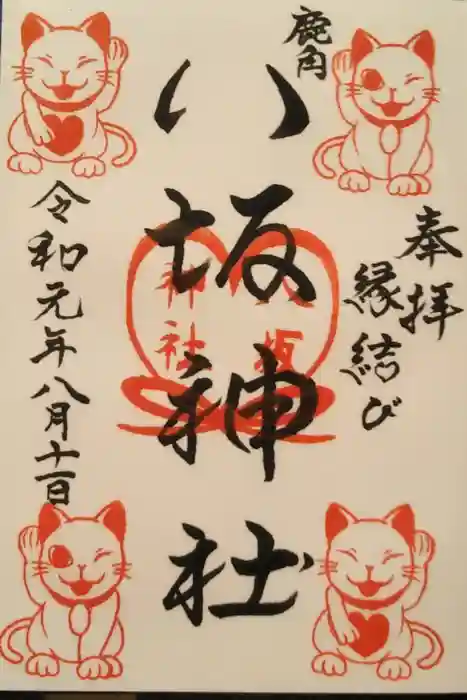 鹿角
奉拝
縁結び
八坂神社
八坂
神社
令和元年八月十一日